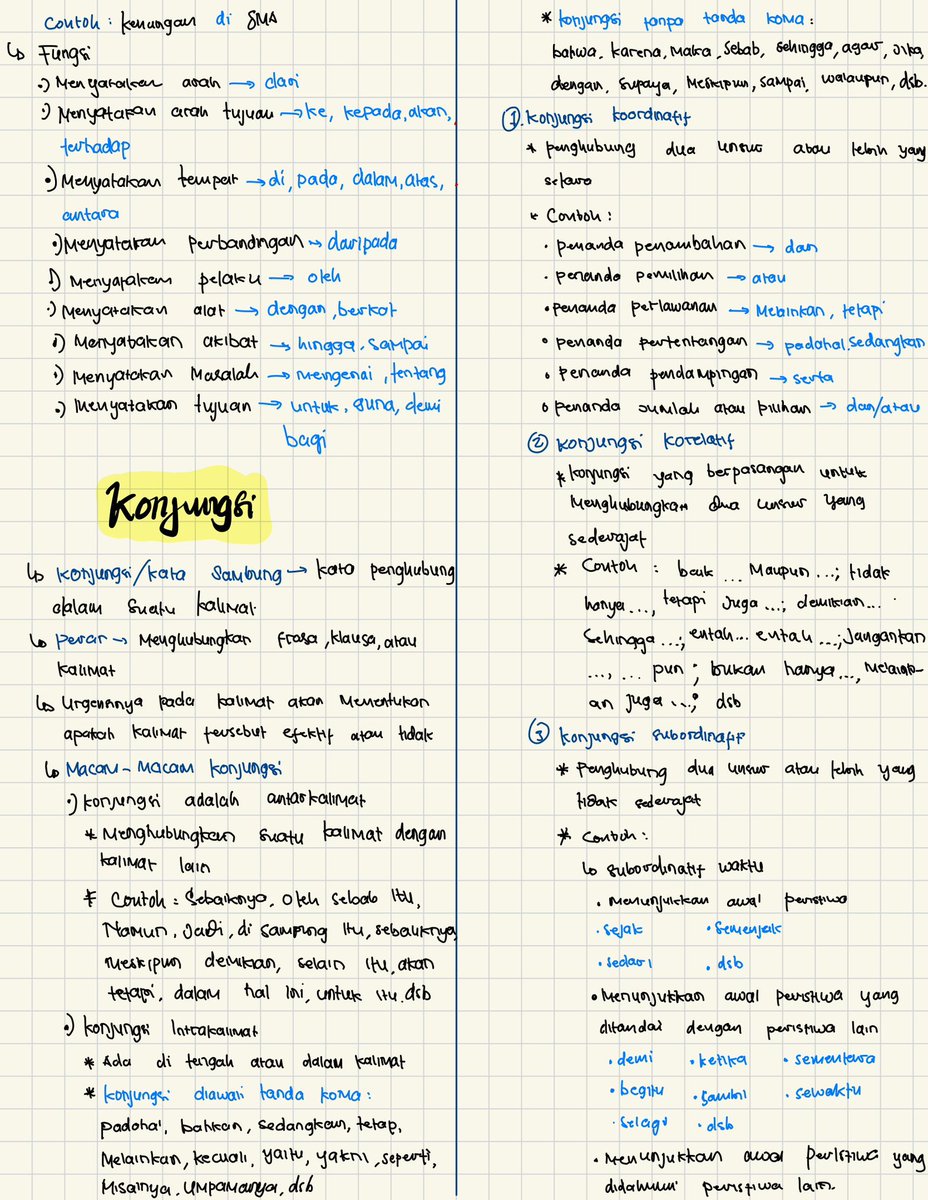 Contoh : kenangan di SMA
↳ Fungsi
•) Menyatakan arah → dari
•) Menyatakan arah tujuan → ke, kepada, akan,
terhadap
•) Menyatakan tempat → di, pada, dalam, atas,
antara
•) Menyatakan perbandingan → daripada
•) Menyatakan pelaku → oleh
•) Menyatakan alat → dengan, berkat
•) Menyatakan akibat → hingga, sampai
•) Menyatakan Masalah → mengenai, tentang
•) Menyatakan tujuan → untuk, guna, demi
bagi
Konjungsi
↳ Konjungsi/kata sambung → kata penghubung
dalam suatu kalimat
↳ peran → Menghubungkan frasa, klausa, atau
kalimat
↳ Urgensinya pada kalimat akan Menentukan
apakah kalimat tersebut efektif atau tidak
↳ Macam-Macam konjungsi
•) konjungsi adalah antarkalimat
* Menghubungkan suatu kalimat dengan
kalimat lain
* Contoh : Sebaiknya, oleh sebab itu,
Namun, Jadi, di samping itu, sebaliknya,
meskipun demikian, selain itu, akan
tetapi, dalam hal ini, untuk itu, dsb
•) konjungsi Intrakalimat
* Ada di tengah atau dalam kalimat
* konjungsi diawali tanda koma :
padahal, bahkan, sedangkan, tetap,
Melainkan, kecuali, yaitu, yakni, seperti,
Misalnya, Umpamanya, dsb
* konjungsi tanpa tanda koma :
bahwa, karena, Maka, Sebab, sehingga, agar, jika,
dengan, supaya, Meskipun, sampai, walaupun, dsb.
① konjungsi koordinatif
* penghubung dua unsur atau lebih yang
setara
* Contoh :
• penanda penambahan → dan
• penanda pemilihan → atau
• penanda perlawanan → Melainkan, tetapi
• penanda pertentangan → padahal, sedangkan
• penanda pendampingan → serta
• penanda jumlah atau pilihan → dan/atau
② konjungsi korelatif
* konjungsi yang berpasangan untuk
Menghubungkan dua unsur yang
sederajat
* Contoh : baik ... Maupun ...; tidak
hanya ..., tetapi juga ...; demikian ...
Sehingga ...; entah ... entah ...; Jangankan
..., ... pun ; bukan hanya ..., Melaink-
an juga ...; dsb
③ konjungsi subordinatif
* Penghubung dua unsur atau lebih yang
tidak sederajat
* Contoh :
↳ subordinatif waktu
• Menunjukkan awal peristiwa
• sejak • semenjak
• sedari • dsb
• Menunjukkan awal peristiwa yang
ditandai dengan peristiwa lain
• demi • ketika • sementara
• begitu • sambil • sewaktu
• selagi • dsb
• Menunjukkan awal peristiwa yang
didahului peristiwa lain.